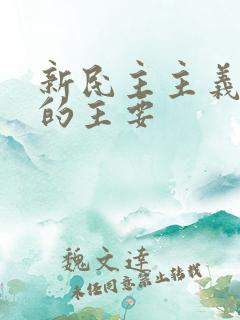 新民主主義
的王安
魏文達
未经同意禁止转载